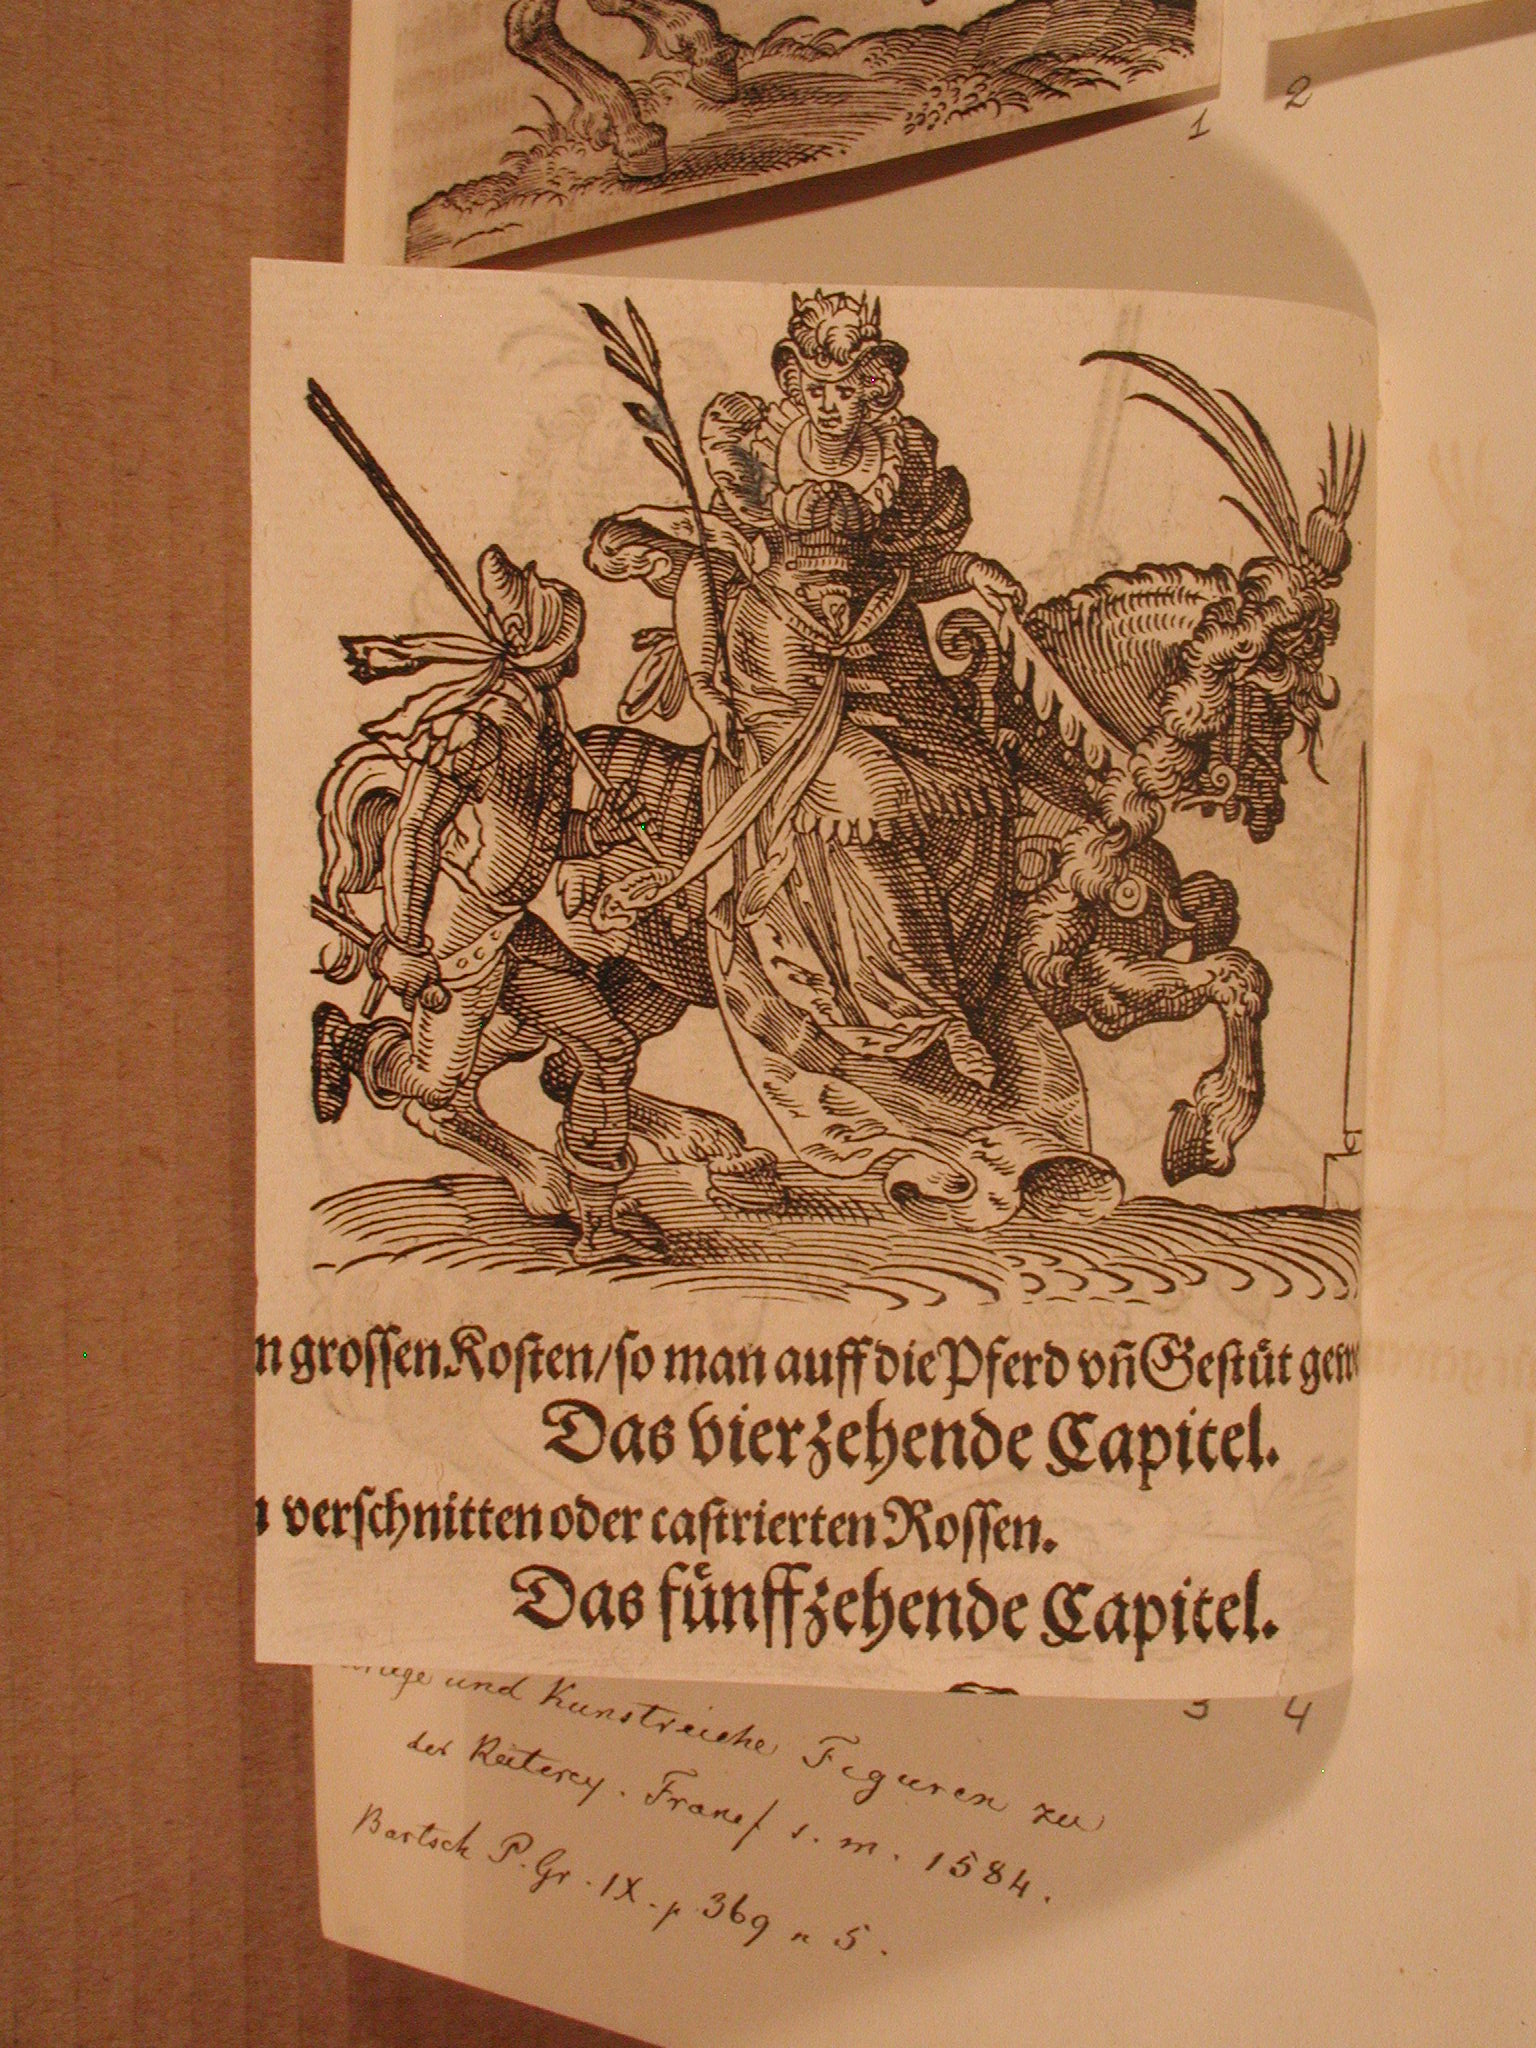 1
2
n grossen Kosten/so man auff die Pferd vn̄ Gestüt gew
Das vierzehende Capitel.
n verschnitten oder castrierten Rossen.
Das fünffzehende Capitel.
3 4
und Kunstreiche Figuren zu
der Reuterey. Francf s. m. 1584.
Bartsch P. Gr. IX. p 369 n 5.